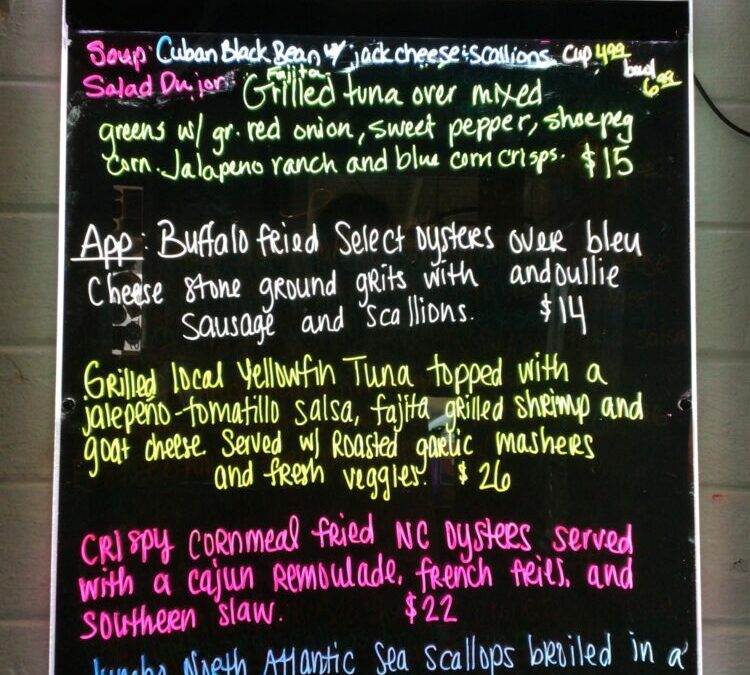 Soup: Cuban Black Bean w/ jack cheese & scallions cup 4.99 bowl 6.99
Salad Du jor: Fajita Grilled tuna over mixed
greens w/ gr. red onion, sweet pepper, shoepeg
corn. Jalapeno ranch and blue corn crisps. $15
App: Buffalo fried Select oysters over bleu
Cheese stone ground grits with andoullie
Sausage and scallions. $14
Grilled local Yellowfin Tuna topped with a
jalepeño-tomatillo salsa, fajita grilled shrimp and
goat cheese. Served w/ Roasted garlic mashers
and fresh veggies. $26
CRISPY CORNMEAL fried NC oysters served
with a cajun remoulade, french fries, and
southern slaw. $22
Jumbo North Atlantic Sea scallops broiled in a